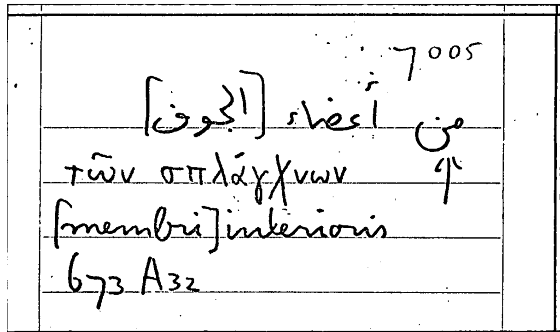 7005
من أعضاء [الجوف]
τῶν σπλάγχνων
[membri] interioris
673 A32